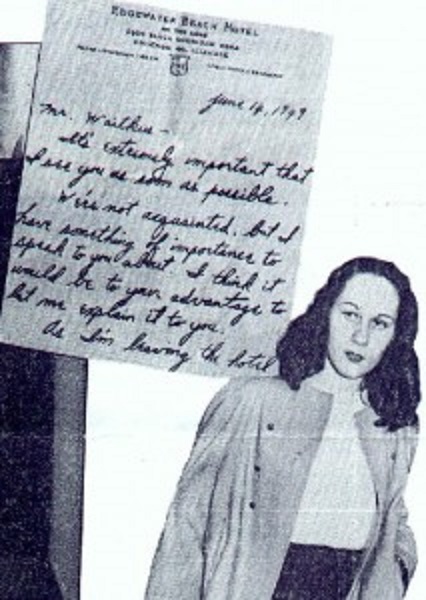 EDGEWATER BEACH HOTEL
ON THE LAKE
5300 BLOCK SHERIDAN ROAD
CHICAGO 40, ILLINOIS
June 14, 1949
Mr. Waitkus –
It's extremely important that
I see you as soon as possible.
We're not acquainted, but I
have something of importance to
speak to you about. I think it
would be to your advantage to
let me explain it to you.
As I'm leaving the hotel